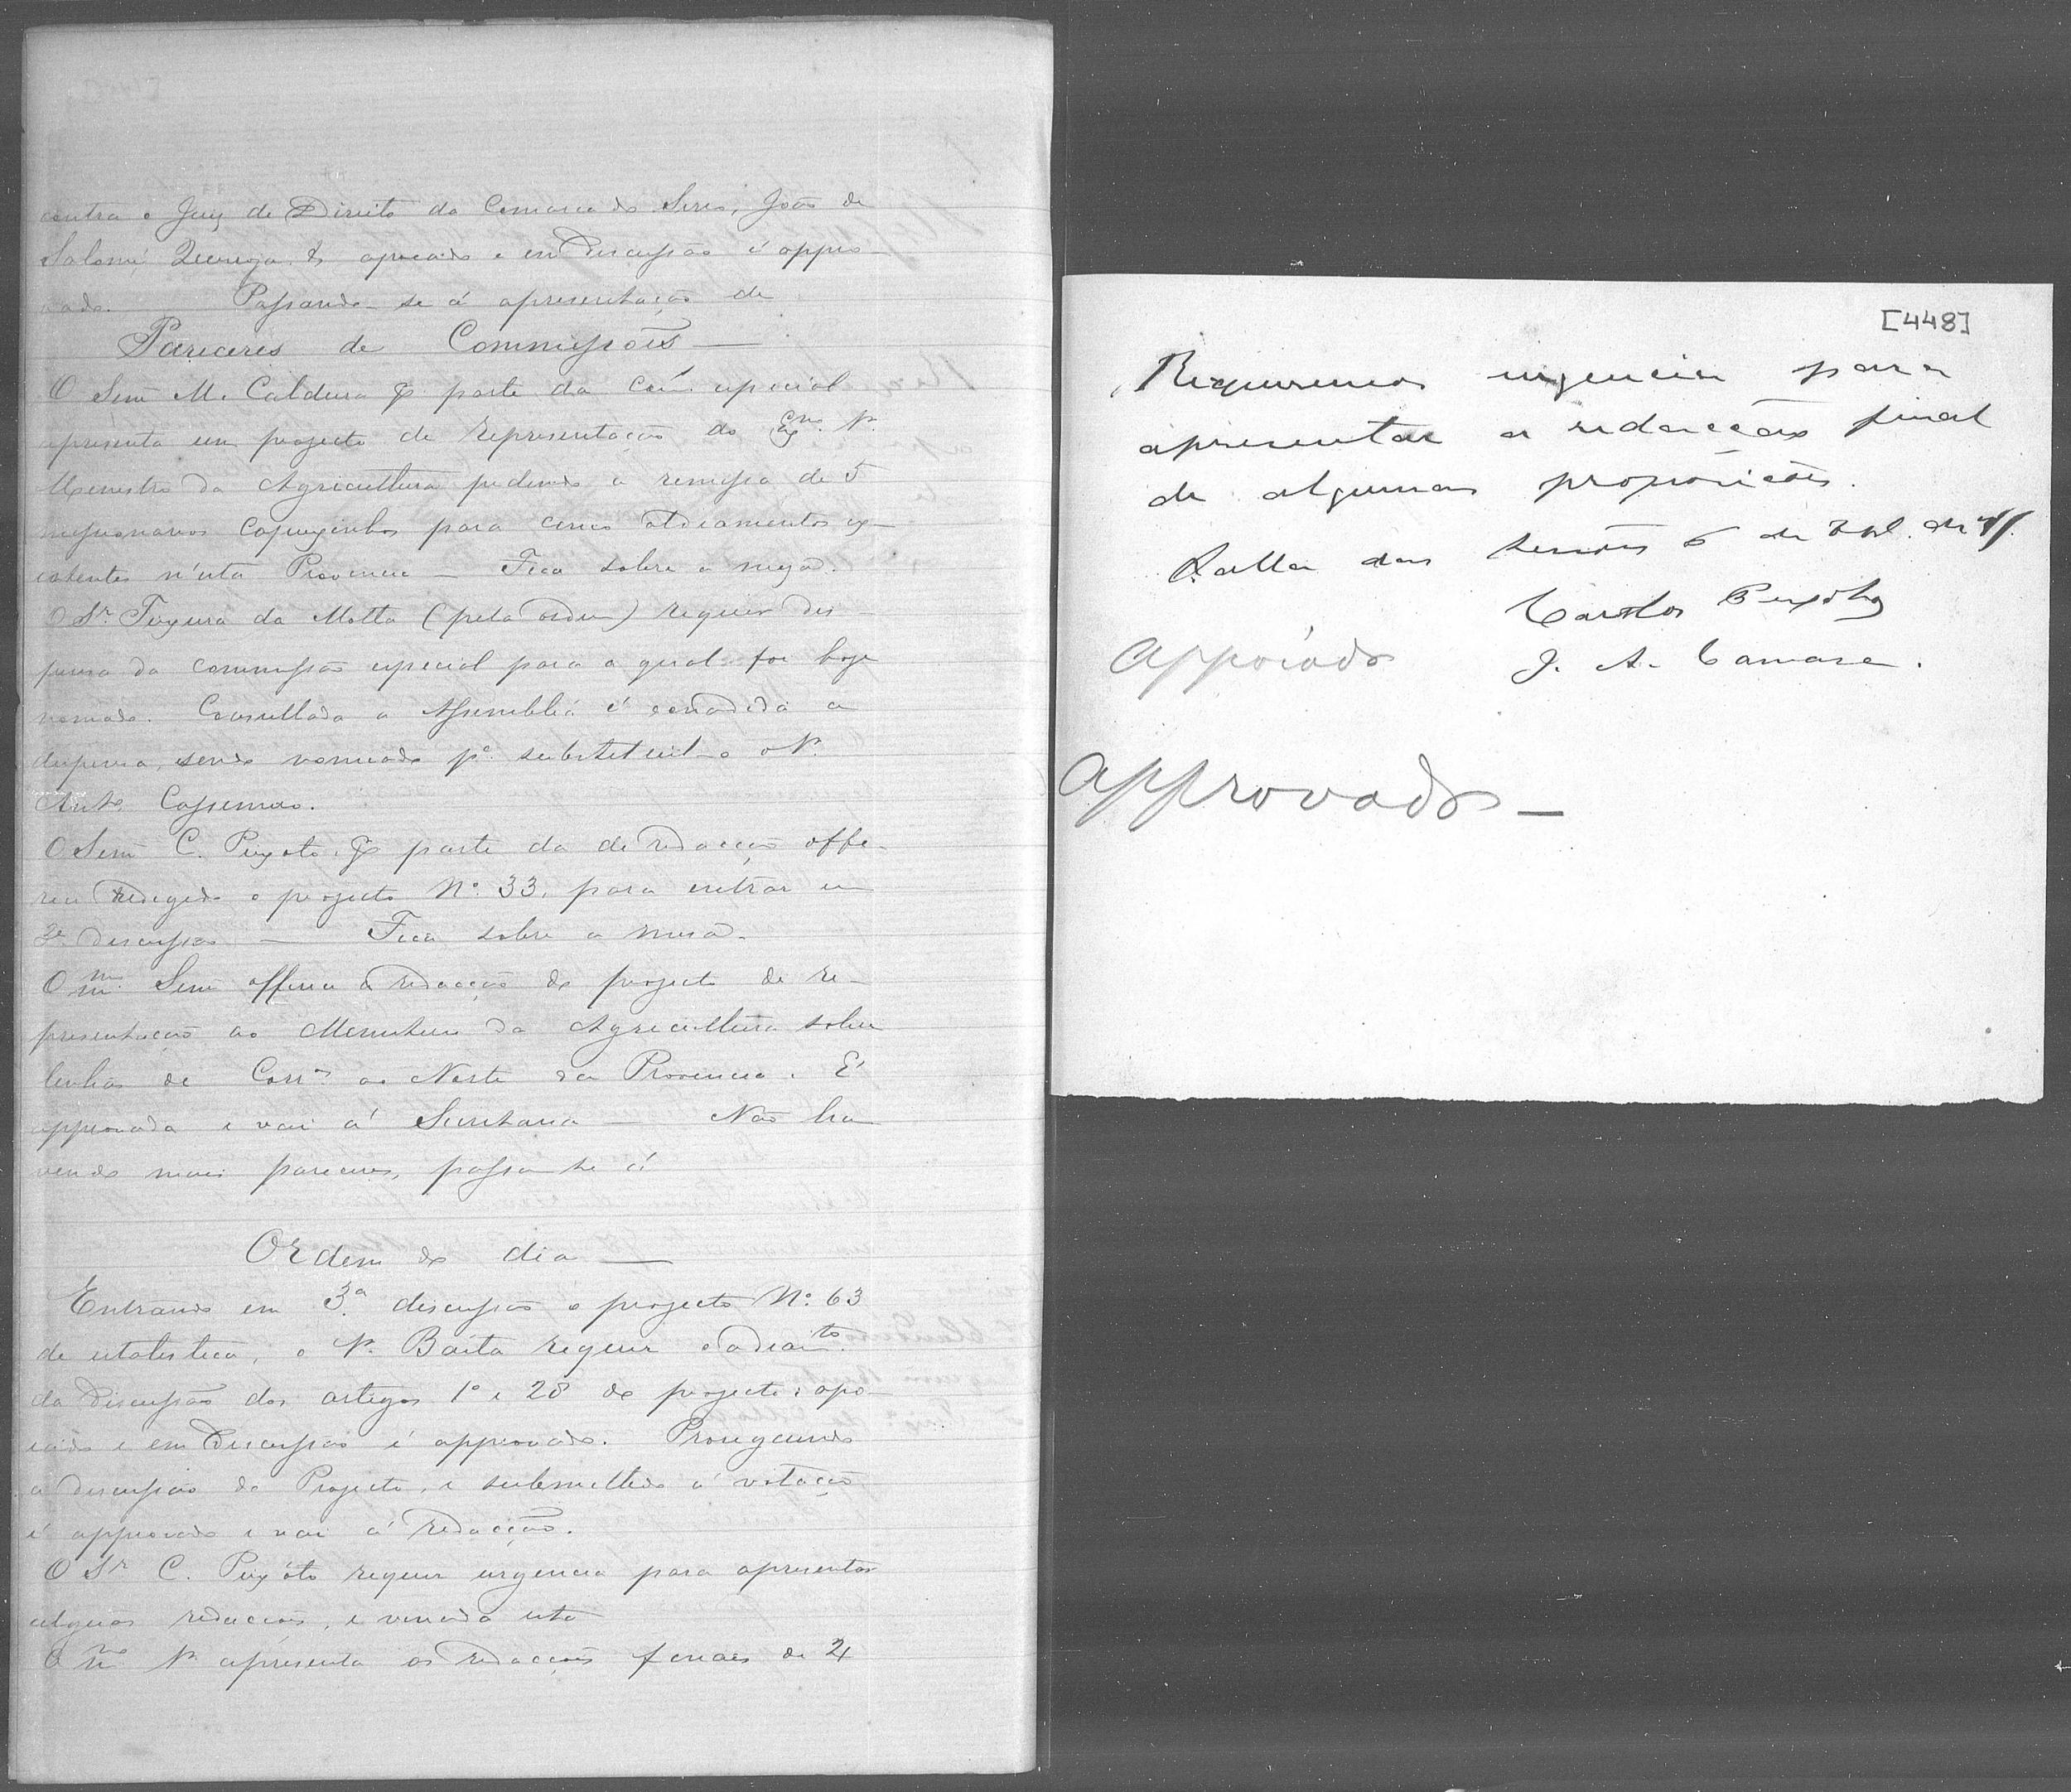 contra o Juiz de Direito da Comarca do Serro, João de
Salomé Queiroga, & apoiado e em discussão é appro-
vado. Passando-se á apresentação de
Pareceres de Commissões —
O Senr M. Caldeira por parte da Com. especial
apresenta um projecto de representação ao Exmo Sr.
Ministro da Agricultura pedindo a remessa de 5
missionarios Capuxinhos para cinco aldeamentos ex-
istentes n'esta Provincia — Fica sobre a meza.
O Sr. Teixeira da Motta (pela ordem) requer dis-
pensa da commissão especial para a qual foi hoje
nomeado. Consultada a Assembléa é concedida a
dispensa, sendo nomeado pa. substituil-o o Sr.
Anto. Cassemiro.
O Senr C. Peixoto por parte da de redacção offe-
rece redigido o projecto No. 33, para entrar em
3a. discussão — Fica sobre a mesa.
O mmo. Senr offerece a redacção do projecto de re-
presentação ao Ministerio da Agricultura sobre
linhas de Corros ao Norte da Provincia. É
approvada e vai á Secretaria — Não ha-
vendo mais pareceres, passa-se á
Ordem do dia —
Entrando em 3.a discussão o projecto No. 63
de estatistica, o Sr. Baita requer o adiamto.
da discussão dos artigos 1o e 28 do projecto: apo-
iado e em discussão é approvado. Proseguindo
a discussão do Projecto, e submettido á votação
é approvado e vai á redacção.
O Sr C. Peixóto requer urgencia para apresentar
algũas redacções, e vencida esta
O mmo Sr. apresenta as redacções finaes de 4
[448]
Requeremos urgencia para
apresentar a redacção final
de algumas proposições.
Salla das sessões 6 de de
Carlos Peixoto
J. A. Camara.
Appoiado
Approvado —